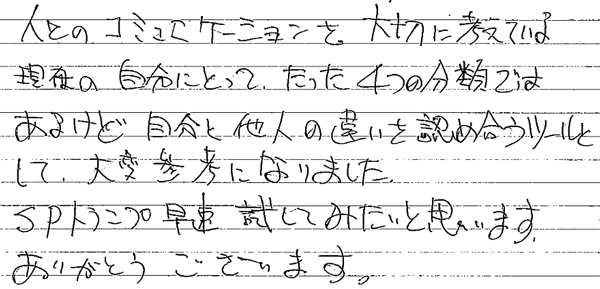 人とのコミュニケーションを大切に考えている
現在の自分にとって、たった4つの分類では
あるけど自分と他人の違いを認め合うツールと
して、大変参考になりました。
SPトランプ早速試してみたいと思います。
ありがとうございます。